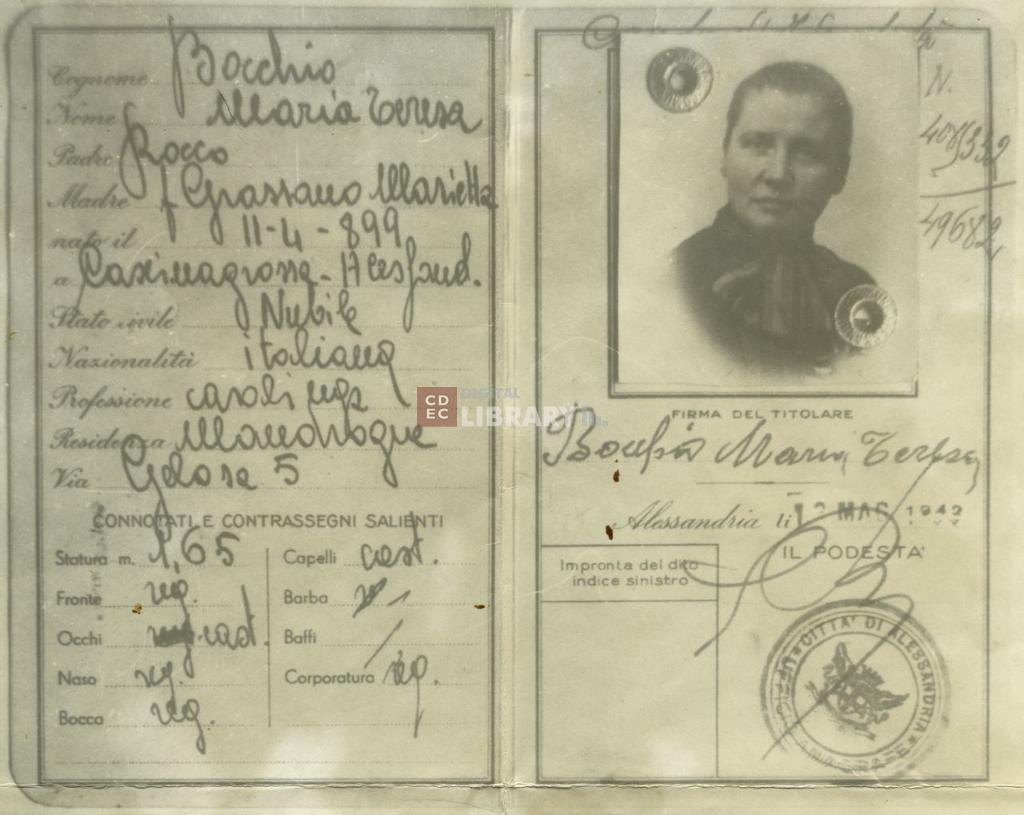 Cognome Bocchio
Nome Maria Teresa
Padre Rocco
Madre f Grassano Marietta
nato il 11-4-899
a Cascinagrossa - Alessand.
Stato civile Nubile
Nazionalità italiana
Professione casalinga
Residenza Mandrogne
Via Gelosa 5
CONNOTATI E CONTRASSEGNI SALIENTI
Statura m. 1,65
Fronte reg.
Occhi cast.
Naso reg.
Bocca reg.
Capelli cast.
Barba
Baffi /
Corporatura reg.
N.
408532
49682
CDEC DIGITAL LIBRARY
FIRMA DEL TITOLARE
Bocchio Maria Teresa
Alessandria li 12 MAG 1942
IL PODESTA'
Impronta del dito
indice sinistro
CITTA' DI ALESSANDRIA
UFFICIO ANAGRAFE